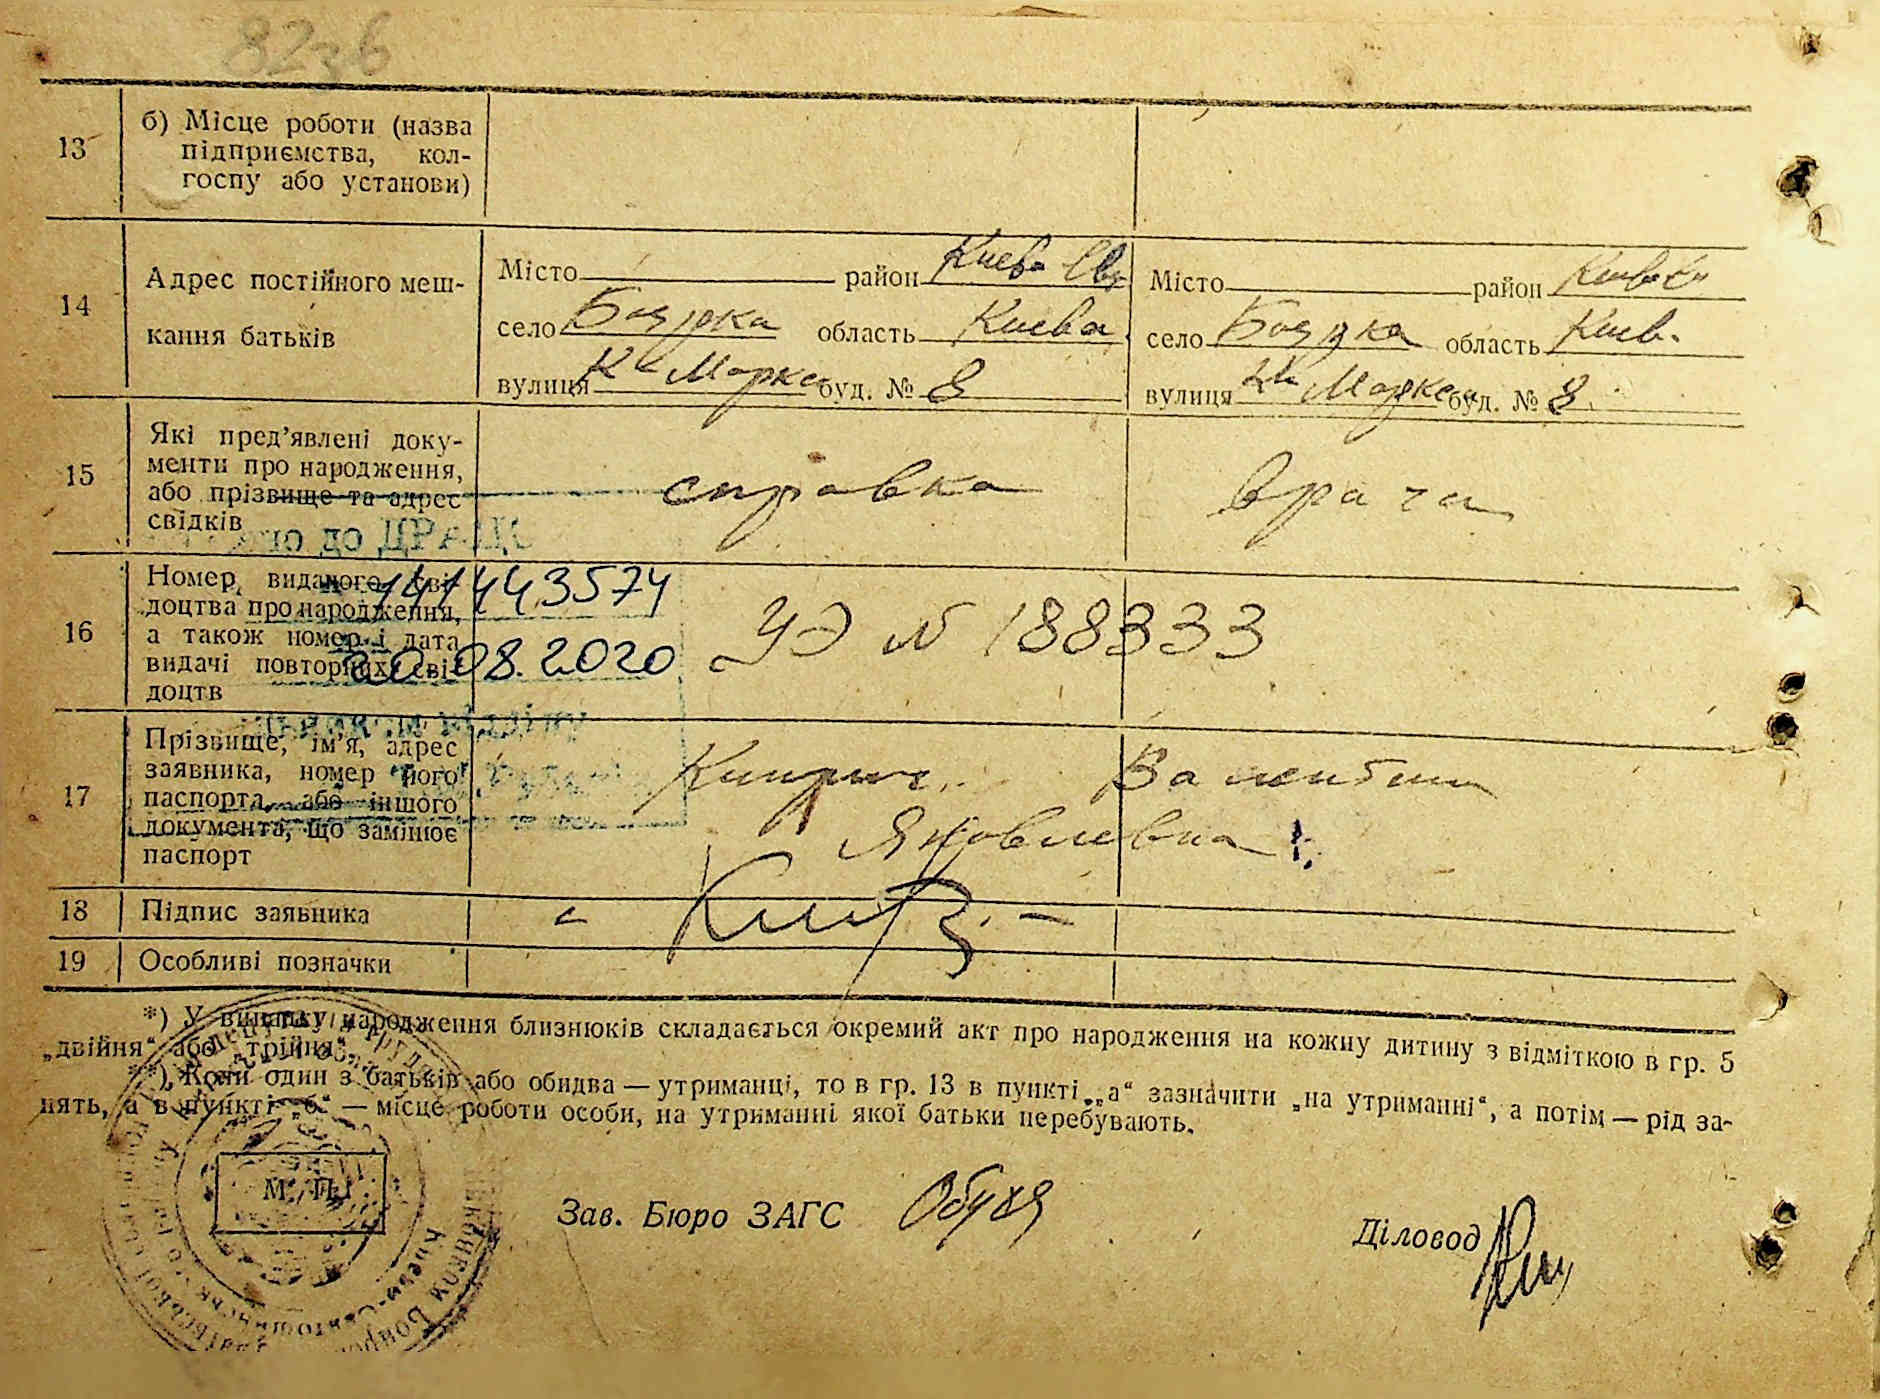 13
б) Місце роботи (назва
підприємства, кол-
госпу або установи)
14
Адрес постійного меш-
кання батьків
Місто район Киево Св
село Боярка область Киева
вулиця К. Маркса буд. № 8
Місто район
село Боярка область Киев.
вулиця Маркса буд. № 8
15
Які пред'явлені доку-
менти про народження,
або прізвище та адрес
свідків
справка врача
до ДРАЦС
16
Номер виданого сві-
доцтва про народження,
а також номер і дата
видачі повторних сві-
доцтв
20.08.2020
УЭ № 188333
17
Прізвище, ім'я, адрес
заявника, номер його
паспорта, або іншого
документа, що замінює
паспорт
Валентина
Яковлевна
18
Підпис заявника
19
Особливі позначки
*) У випадку народження близнюків складається окремий акт про народження на кожну дитину з відміткою в гр. 5
„двійня“ або „трійня“.
**) Коли один з батьків або обидва — утриманці, то в гр. 13 в пункті „а“ зазначити „на утриманні“, а потім — рід за-
нять, а в пункті „б“ — місце роботи особи, на утриманні якої батьки перебувають.
М. П.
Зав. Бюро ЗАГС
Діловод